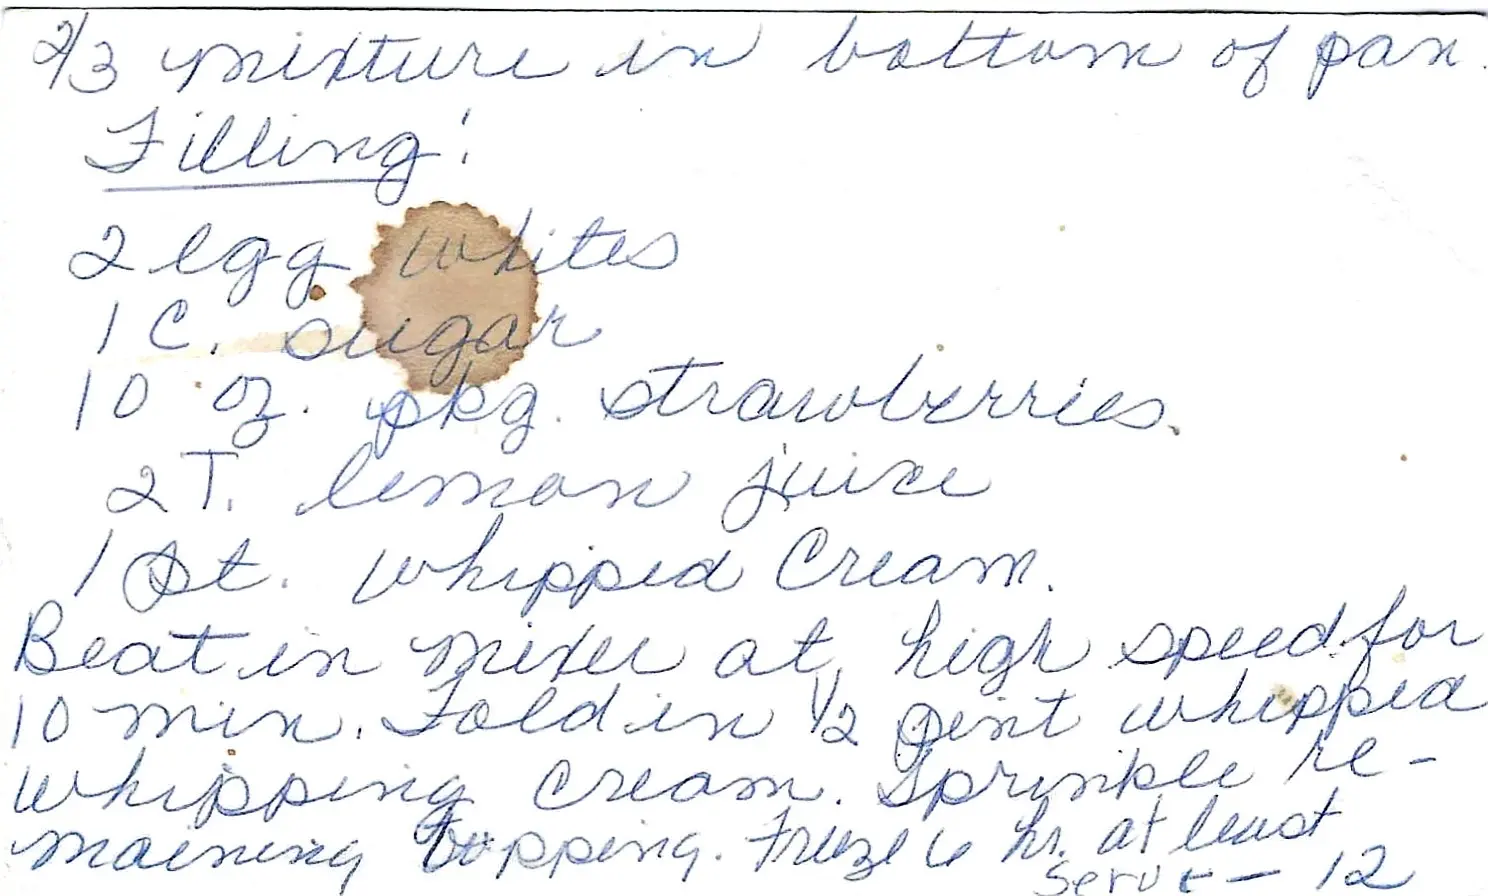 2/3 mixture in bottom of pan.
Filling:
2 egg whites
1 C. sugar
10 oz. pkg. strawberries.
2 T. lemon juice
1 pt. whipped cream.
Beat in mixer at high speed for
10 min. Fold in 1/2 pint whipped
whipping cream. Sprinkle re-
maining topping. Freeze 6 hr. at least
Serve - 12